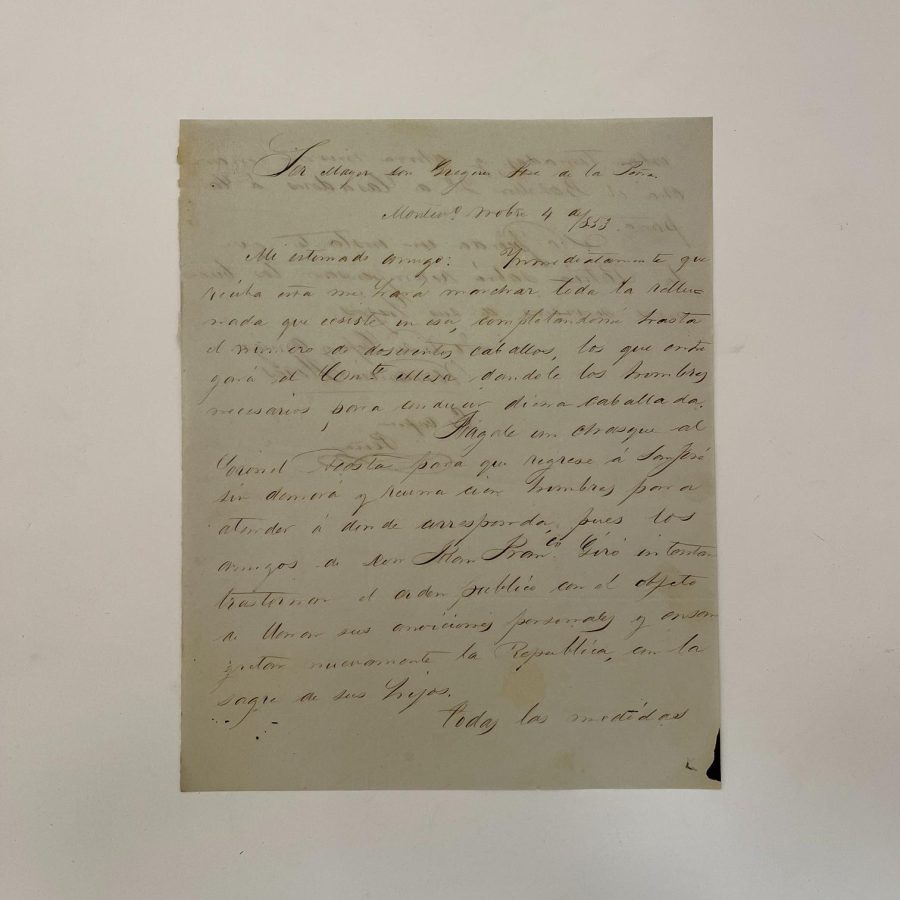 Sor Mayor Don Gregorio Jose de la Peña.
Montevo. Nobre 4 de /853.
Mi estimado amigo: Ynmediatamente que
reciba esta me hará marchar toda la
que ecsiste en esa, completandome hasta
el número de doscientos caballos, los que entre
gará al Comte. Mesa dandole los hombres
necesarios, para conducir dicha caballada.
Hágale un chasque al
Coronel Acosta para que regrese á San José
sin demora y reuna cien hombres para
atender á donde corresponda, pues los
amigos de Don Juan Franco. Giró intentan
trastornar el orden publico con el objeto
de llenar sus anviciones personales y ensan
gretar nuevamente la Republica, con la
sagre de sus hijos.
todas las medidas